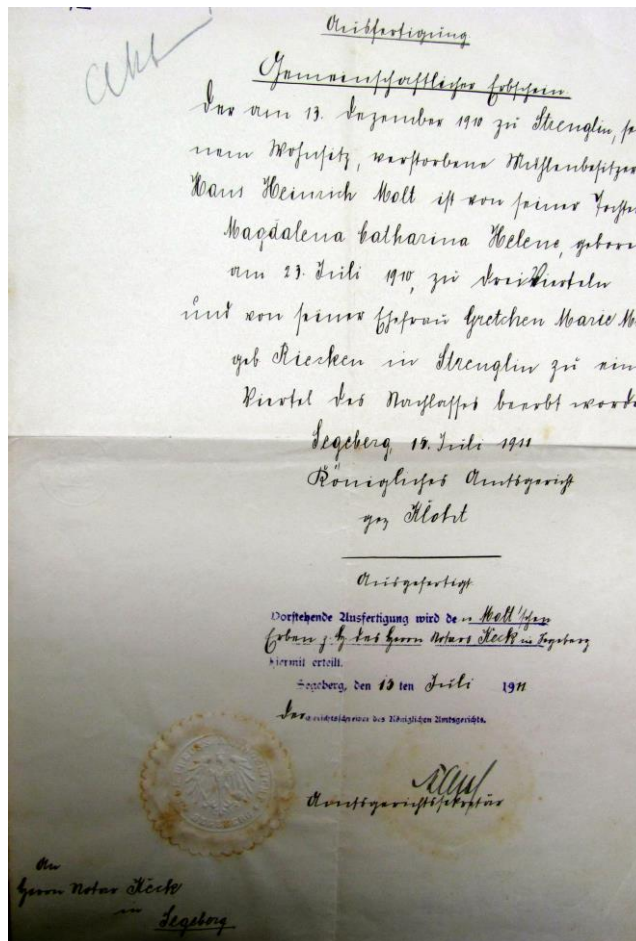 Ausfertigung
Gemeinschaftlicher Erbschein.
Der am 13. Dezember 1910 zu Strenglin, sei
nem Wohnsitz, verstorbene Mühlenbesitzer
Hans Heinrich Molt ist von seiner Tochter
Magdalena Catharina Helene, geboren
am 23. Juli 1910, zu drei Vierteln
und von seiner Ehefrau Gretchen Marie M
geb Riecken in Strenglin zu ein
Viertel des Nachlasses beerbt worde
Segeberg, 15. Juli 1911
Königliches Amtsgericht
gez
Ausgefertigt
Vorstehende Ausfertigung wird den Molt'schen
Erben z. H des Herrn Notars Keck in Segeberg
hiermit erteilt.
Segeberg, den 15 ten Juli 1911
Der Gerichtsschreiber des Königlichen Amtsgerichts.
Amtsgerichtssekretär
An
Herrn Notar Keck
in
Segeberg